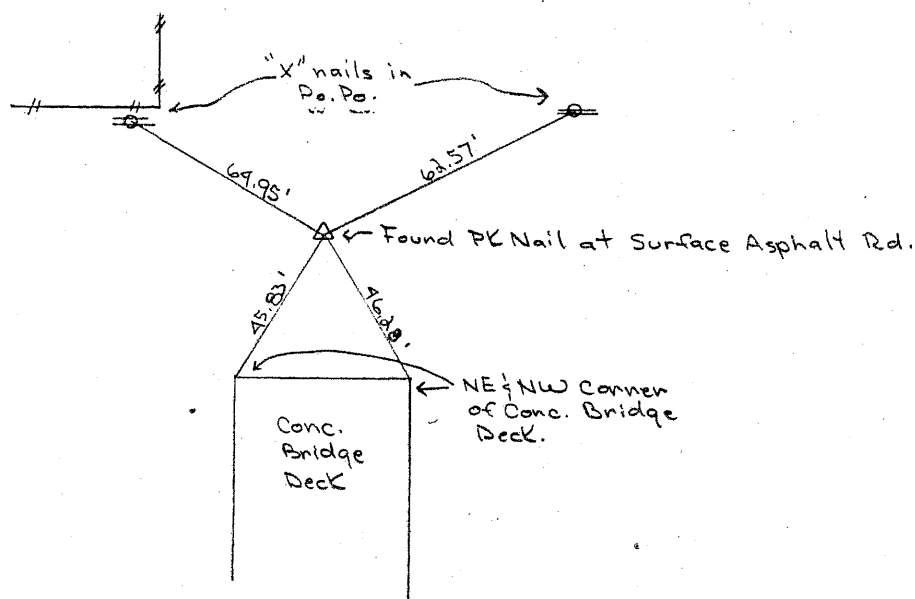 "X" nails in
Po. Po.
64.95'
62.57'
Found PK Nail at Surface Asphalt Rd.
45.83'
46.28'
NE & NW Corner
of Conc. Bridge
Deck.
Conc.
Bridge
Deck